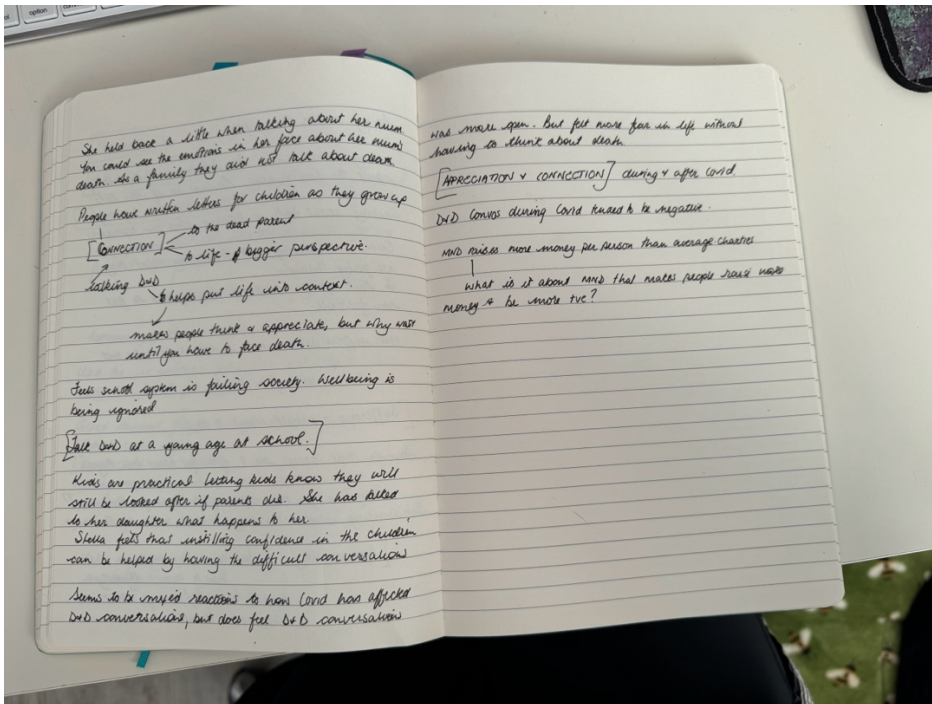 She held back a little when talking about her mum
You could see the emotions in her face about her mum's
death. As a family they did not talk about death.
People have written letters for children as they grow up
[CONNECTION]
to the dead parent
to life - bigger perspective.
talking D+D
helps put life into context.
makes people think & appreciate, but why wait
until you have to face death.
Feels school system is failing society. Wellbeing is
being ignored
[Talk D+D at a young age at school.]
Kids are practical letting kids know they will
still be looked after if parents die. She has talked
to her daughter what happens to her.
Stella feels that instilling confidence in the children
can be helped by having the difficult conversations
Seems to be mixed reactions to how Covid has affected
D+D conversations, but does feel D+D conversations
was more open. But felt more fear in life without
having to think about death
[APPRECIATION & CONNECTION] during & after Covid
D+D Convos during Covid tended to be negative.
MND raises more money per person than average charities
What is it about MND that makes people raise more
money & be more +ve?
option